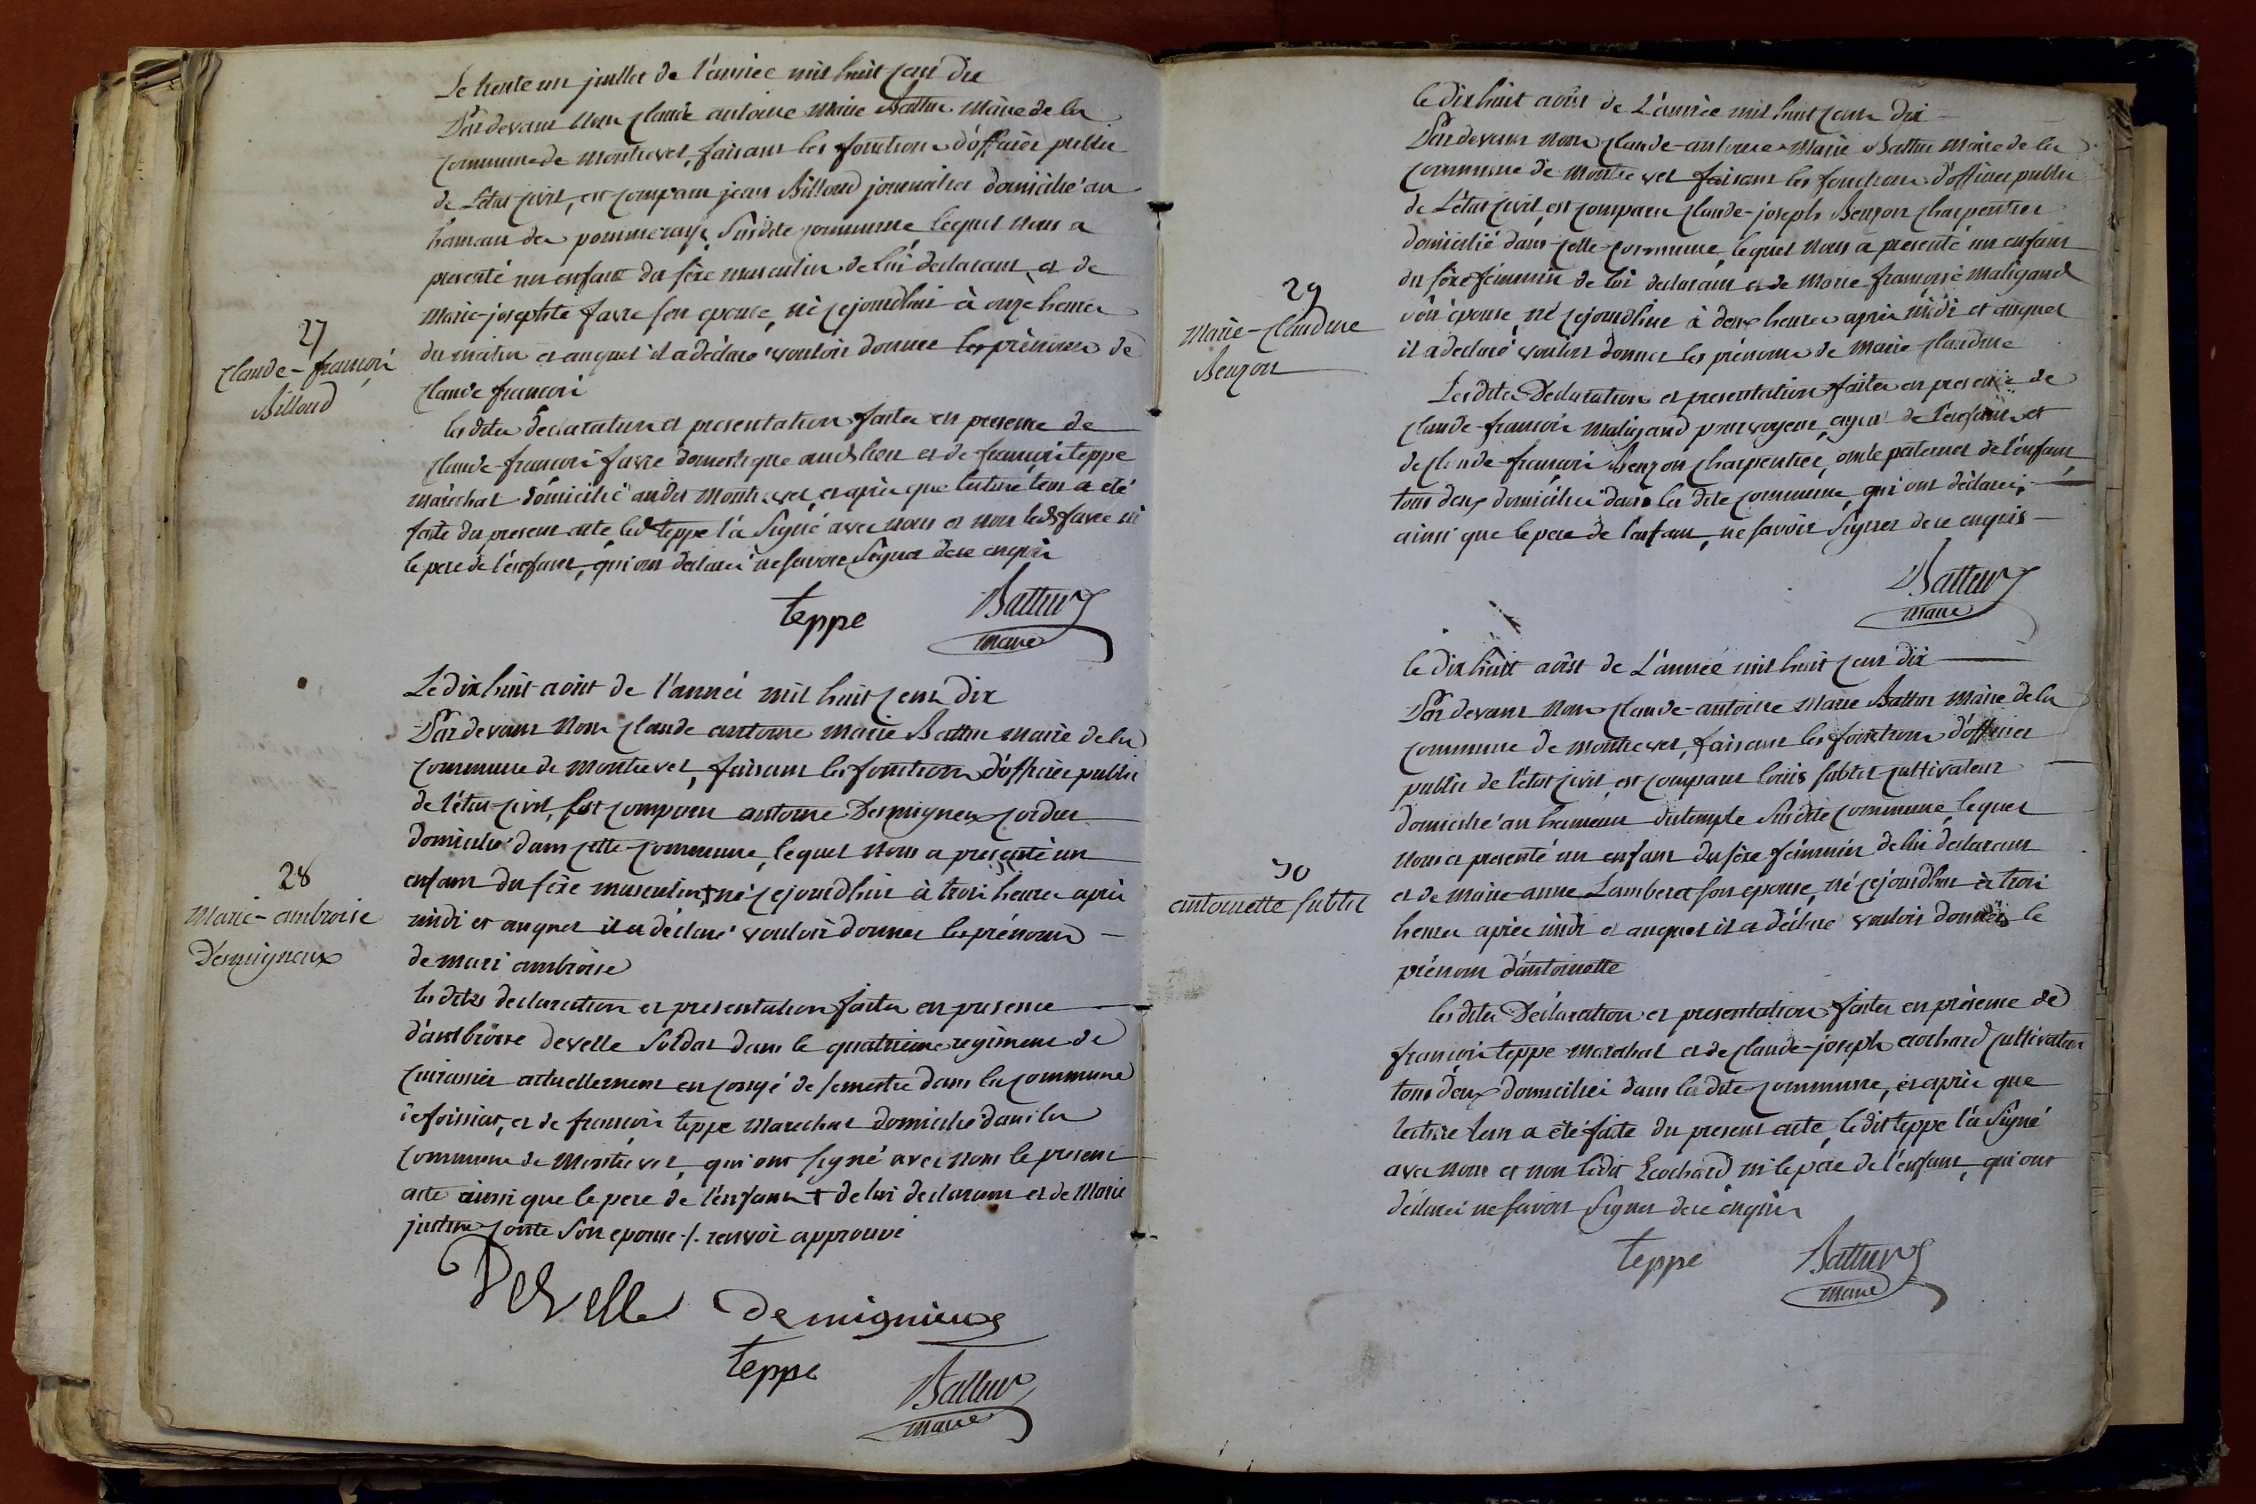 Le trente un juillet de l'année mil huit cent dix
Pardevant Nous Claude antoine Marie Battur Maire de la
Commune de Montrevel, faisant les fonctions d'officier public
de l'état civil, est comparu jean Billoud journalier domicilié au
hameau des pommerays, susdite commune, lequel nous a
presenté un enfant du sexe masculin de lui declarant, et de
Marie-josephte favre son epouse, né cejourdhui à onze heures
du matin et auquel il a déclaré vouloir donner les prénoms de
27
Claude-françois
Billoud
Claude françois
les dites declaration et presentation faites en presence de
Claude-françois favre domestique audit lieu et de françois teppe
maréchal domicilié audit Montrevel, et après que lecture leur a été
faite du present acte led teppe l'a signé avec nous et non led favre ni
le pere de l'enfant, qui ont declaré ne savoir signer de ce enquis
teppe Battur
maire
Le dix huit août de l'année mil huit cent dix
Pardevant Nous Claude antoine Marie Battur maire de la
Commune de Montrevel, faisant les fonctions d'officier public
de l'état-civil, est comparu antoine Desmigneux
domicilié dans cette commune, lequel nous a presenté un
enfant du sexe masculin + né cejourdhui à trois heures après
midi et auquel il a déclaré vouloir donner les prénoms
28
Marie-ambroise
Desmigneux
de mari ambroise
les dites declaration et presentation faites en presence
d'ambroise develle soldat dans le quatrieme regiment de
Cuirassier actuellement en congé de semestre dans la commune
de foissiat, et de françois teppe Marechal domicilié dans la
Commune de Montrevel, qui ont signé avec nous le present
acte ainsi que le pere de l'enfant + de lui declarant et de Marie
justine Conte son epouse ./. renvoi approuvé
Develle demignieux
teppe Battur
maire
le dix huit août de L'année mil huit cent dix
Pardevant Nous Claude-antoine Marie Battur Maire de la
Commune de Montrevel faisant les fonctions d'officier public
de L'état civil, est comparu Claude-joseph Benzon Charpentier
domicilié dans cette commune, lequel nous a presenté un enfant
du sexe féminin de lui declarant et de Marie françoise Maligand
son épouse, né cejourdhui à deux heures après midi et auquel
il a declaré vouloir donner les prénoms de Marie Claudine
29
Marie-Claudine
Benzon
Les dites Declaration et presentation faites en presence de
Claude-françois Maligand pourvoyeur, ayeul de l'enfant et
de Claude-françois Benzon Charpentier, oncle paternel de l'enfant,
tous deux domiciliés dans la dite commune, qui ont déclaré,
ainsi que le pere de l'enfant, ne savoir signer de ce enquis
Battur
maire
le dix huit août de L'année mil huit cent dix
Pardevant Nous Claude-antoine Marie Battur Maire de la
Commune de Montrevel, faisant les fonctions d'officier
public de l'état civil, est comparu louis subtil cultivateur
domicilié au hameau dutemple susdite commune, lequel
nous a presenté un enfant du sexe féminin de lui declarant
et de Marie-anne Lamberet son epouse, né cejourdhui à trois
heures après midi et auquel il a déclaré vouloir donner le
30
antoinette subtil
prénom d'antoinette
les dites Déclaration et presentation faites en présence de
françois teppe marechal et de Claude-joseph ecochard cultivateur
tous deux domiciliés dans la dite commune, et après que
lecture leur a été faite du present acte, le dit teppe l'a signé
avec nous et non ledit Ecochard, ni le pere de l'enfant, qui ont
déclaré ne savoir signer de ce enquis
teppe Battur
maire